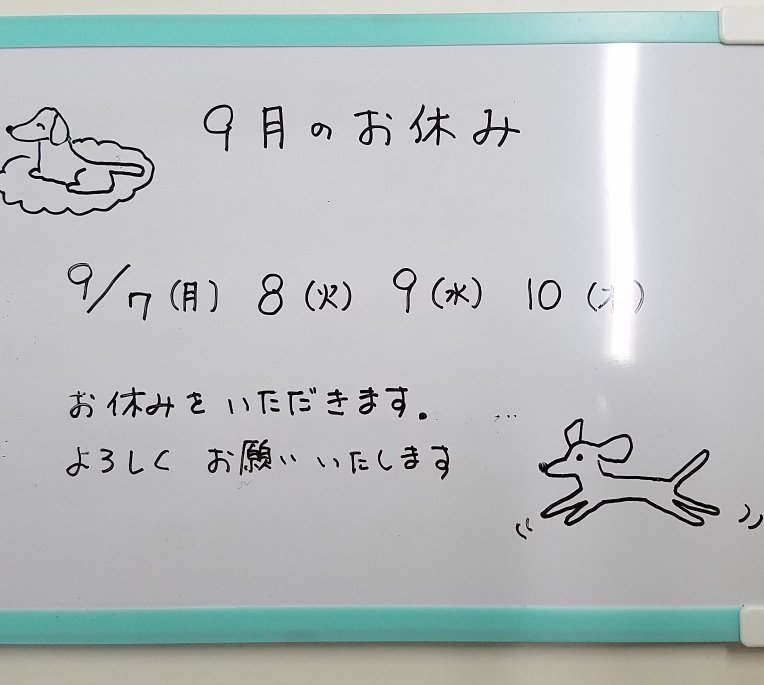 9月のお休み
9/7(月) 8(火) 9(水) 10(木)
お休みをいただきます.
よろしく お願いいたします